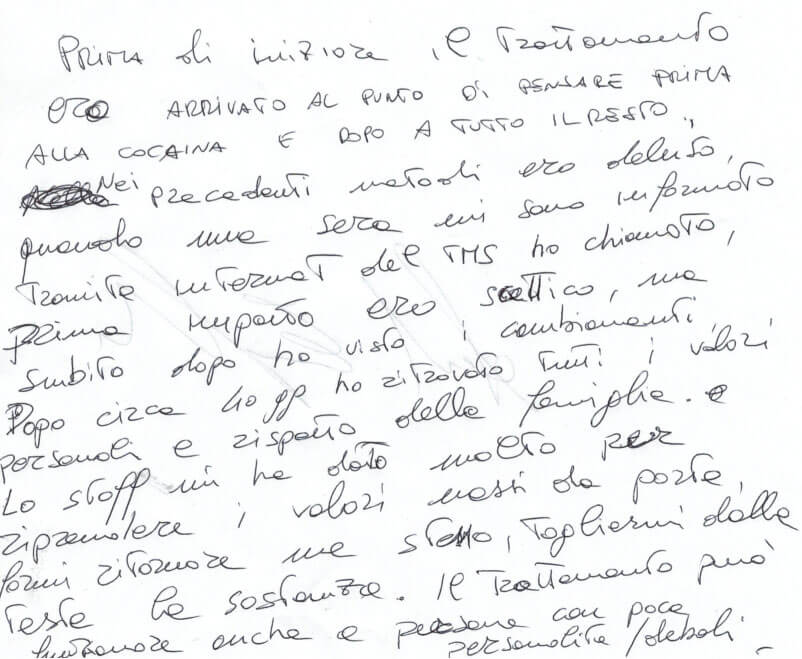 PRIMA di iniziare il trattamento
ero ARRIVATO AL PUNTO DI PENSARE PRIMA
ALLA COCAINA E DOPO A TUTTO IL RESTO.,
Nei precedenti metodi ero deluso,
quando una sera mi sono informato
tramite internet del TMS ho chiamato,
prima impatto ero scettico, ma
subito dopo ho visto i cambiamenti
Dopo circa 40 gg ho ritrovato tutti i valori
personali e rispetto della famiglia. e
Lo staff mi ha dato molto per
riprendere i valori messi da parte,
farmi ritornare me stesso, togliermi dalla
testa la sostanza. Il trattamento può
funzionare anche a persone con poca
personalità/deboli